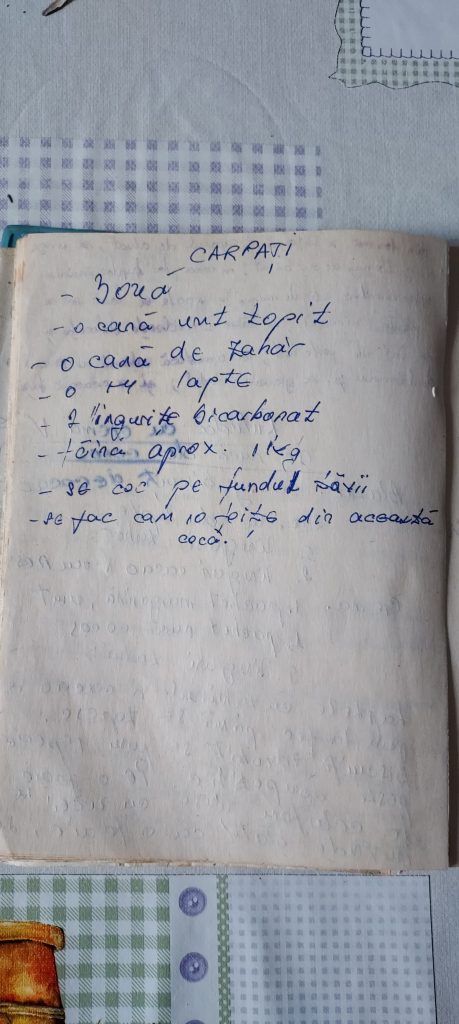 CARPAȚI
- 3 ouă
- o cană unt topit
- o cană de zahăr
- o -"- lapte
- 2 lingurițe bicarbonat
- făină aprox. 1 kg
- se coc pe fundul tăvii
- se fac cam 10 foițe din această
cocă.